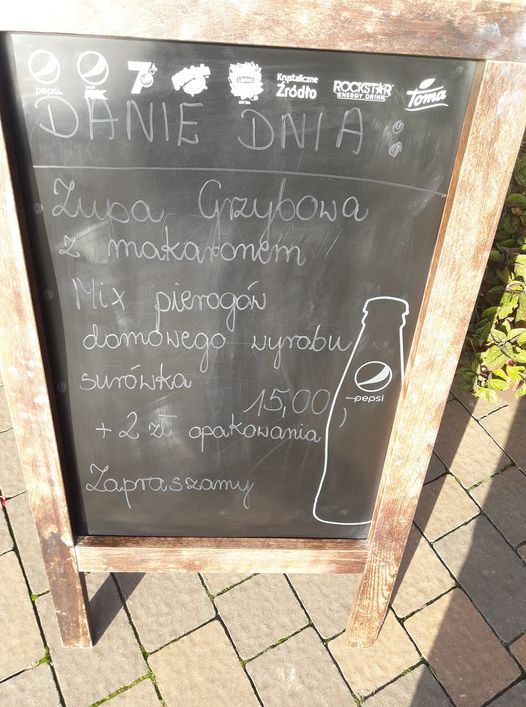 pepsi
Lipton
Krystaliczne Źródło
ROCKSTAR ENERGY DRINK
Toma
DANIE DNIA:
Zupa Grzybowa
z makaronem
Mix pierogów
domowego wyrobu
surówka
15,00,
pepsi
+ 2 zł opakowania
Zapraszamy